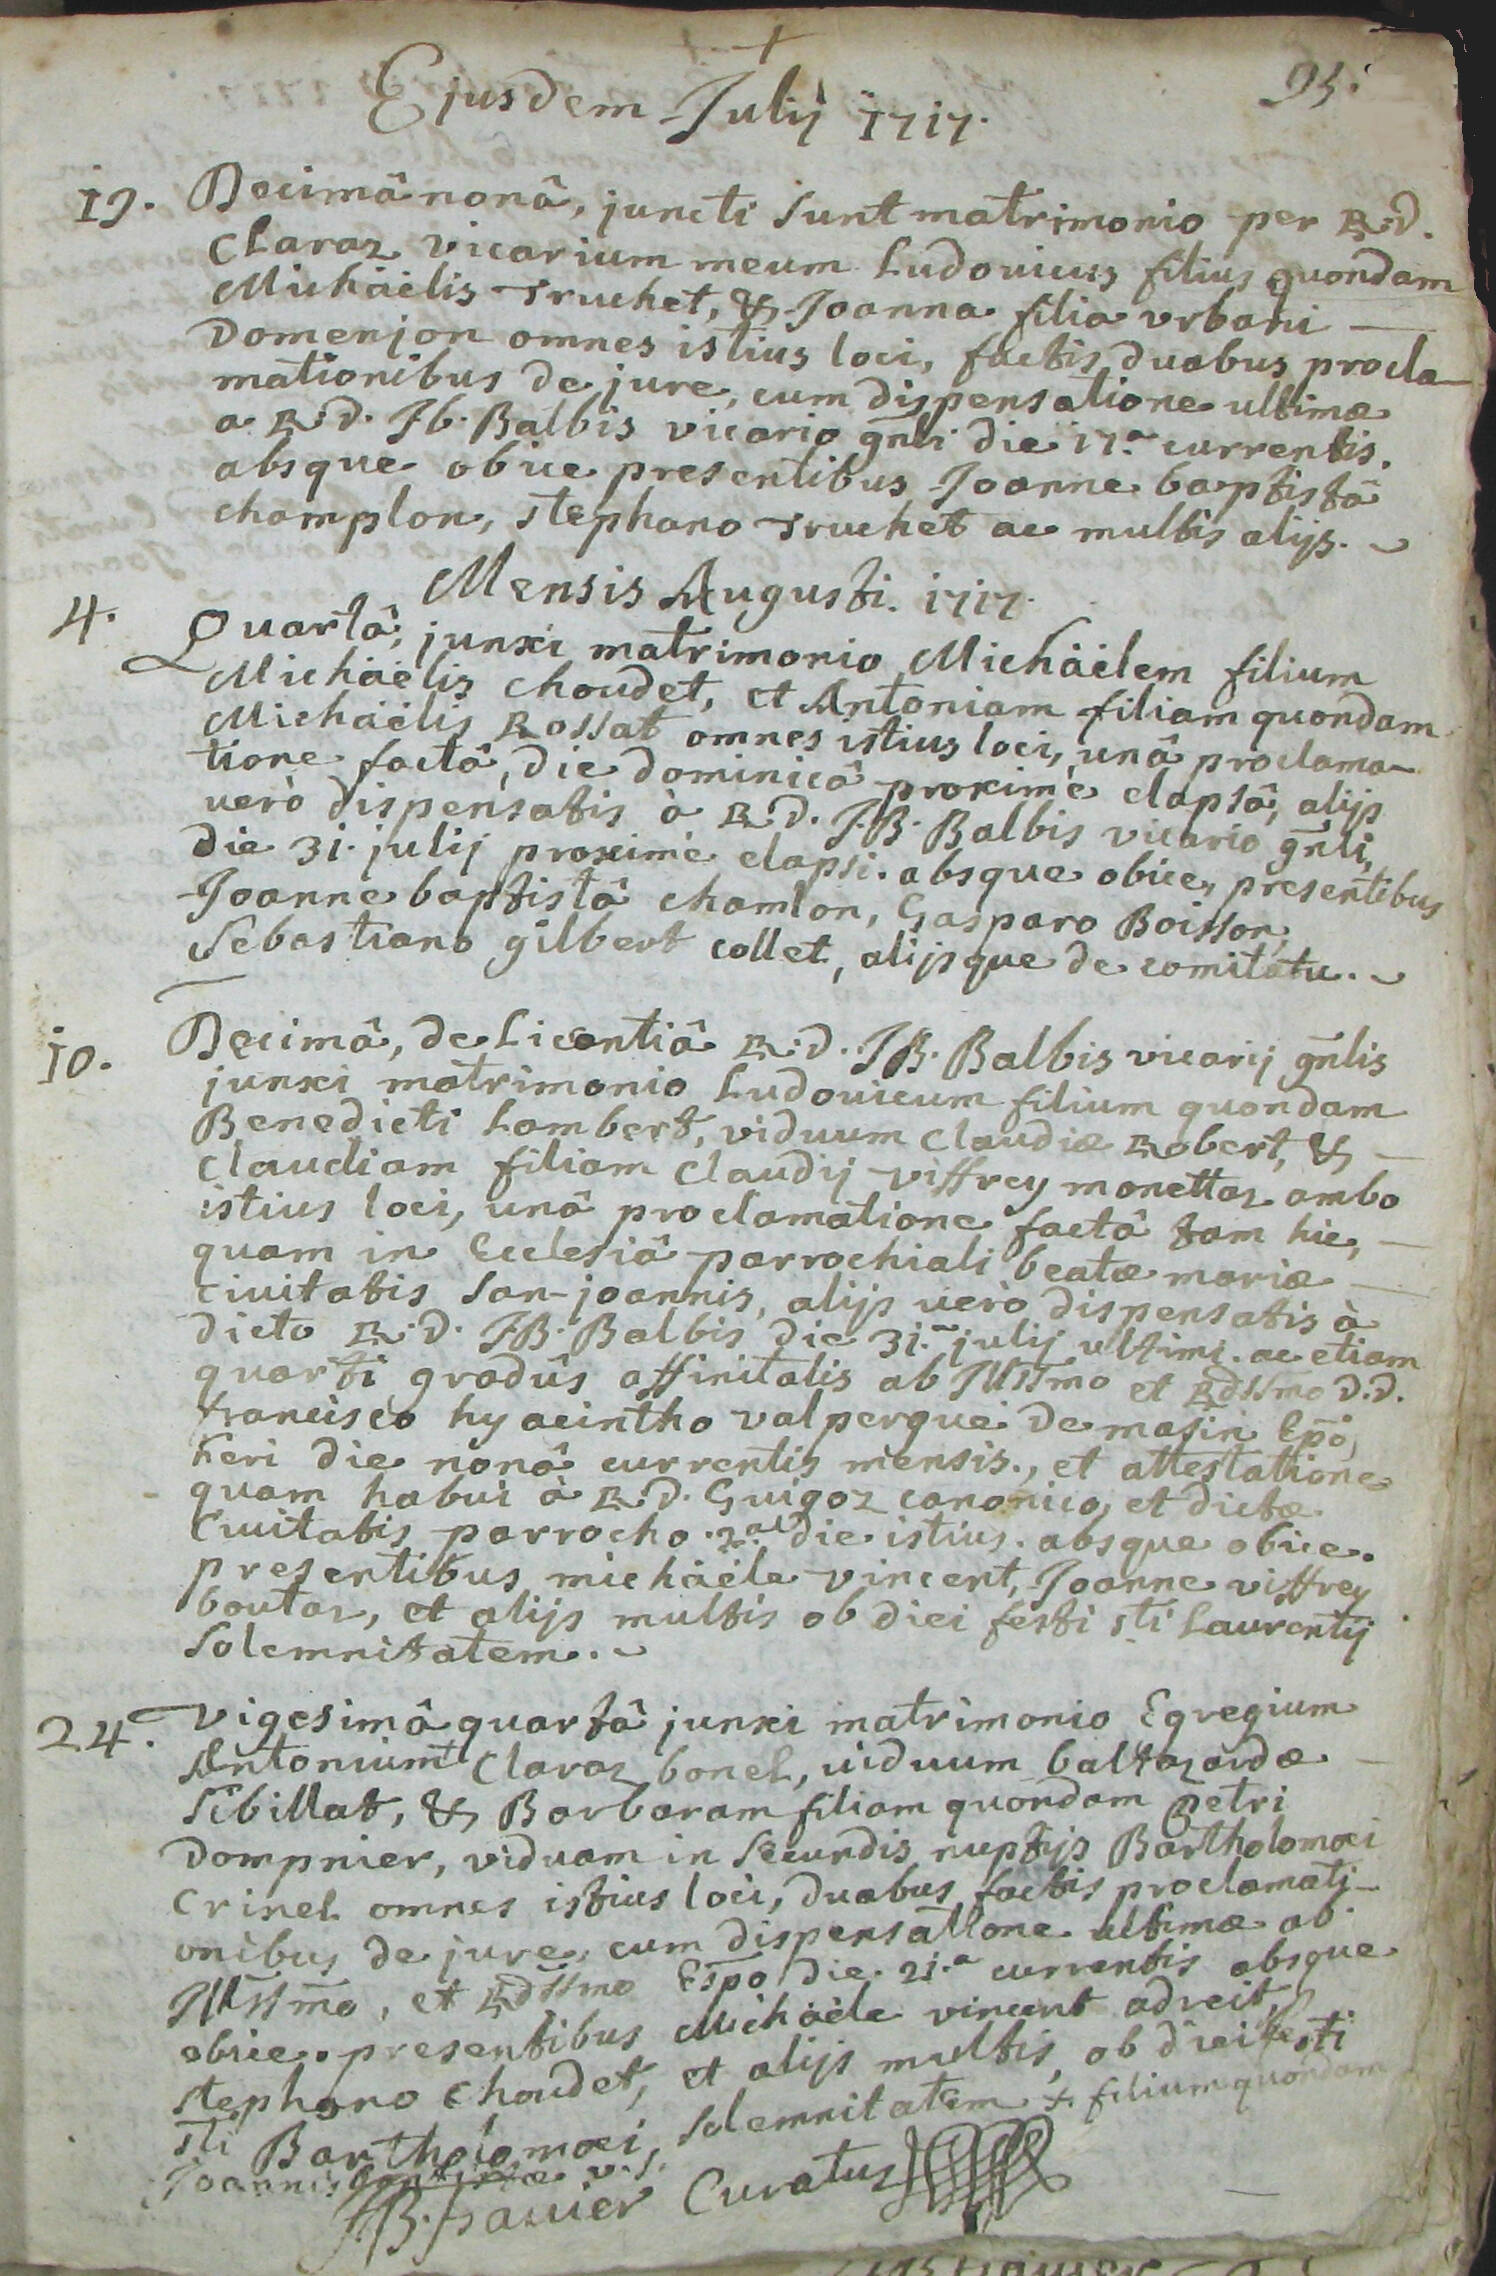 95.
Ejusdem Julij 1717.
19. Decimâ nonâ, juncti sunt matrimonio per R.d.
Claraz vicarium meum Ludovicus filius quondam
Michäelis Truchet, & Joanna filia vrbani —
Domenjon omnes istius loci, factis duabus procla-
mationibus de jure, cum dispensatione ultimæ
a R.d. Jb. Balbis vicario gñli die 17.a currentis.
absque obice presentibus Joanne baptistâ
champlon, stephano Truchet ac multis alijs.
Mensis Augusti. 1717.
4. Quartâ, junxi matrimonio Michäelem filium
Michäelis choudet, et Antoniam filiam quondam
Michäelis Rossat omnes istius loci, unâ proclama-
tione factâ, die dominicâ proximè elapsâ, alijs
verò dispensatis à R.d. J.B. Balbis vicario gñli,
die 31. julij proximè elapsi. absque obice, presentibus
Joanne baptistâ chamlon, Gasparo Boisson,
Sebastiano gilbert collet, alijsque de comitatu.
10. Decimâ, de Licentiâ R.d. J.B. Balbis vicarij gñlis
junxi matrimonio Ludovicum filium quondam
Benedicti Lambert, viduum claudiæ Robert, & —
claudiam filiam claudij viffrey monettaz ambo
istius loci, unâ proclamatione factâ tam hic, —
quam in Ecclesiâ parrochiali beatæ mariæ —
civitatis San-joannis, alijs verò dispensatis à
dicto R.d. J.B. Balbis die 31.a julij ultimi. ac etiam
quarti gradûs affinitatis ab Jllssmo et Rdssmo d.d.
francisco hyacintho valpergue de masin Epõ,
heri die nonâ currentis mensis., et attestatione
quam habui à R.d. Guigoz canonico, et dictæ
Civitatis parrocho. 2.a die istius. absque obice.
presentibus michäele vincent, Joanne viffrey
boutaz, et alijs multis ob diei festi sti Laurentij
Solemnitatem.
24. Vigesimâ quartâ junxi matrimonio Egregium
Antonium + Claraz bonel, viduum baltazardæ —
Sibillat, & Barbaram filiam quondam Petri
Dompnier, viduam in Secundis nuptijs Bartholomæi
Crinel omnes istius loci, duabus factis proclamati-
onibus de jure, cum dispensatione ultimæ ab
Jllssmo, et Rdssmo Espo die. 21.a currentis absque
obice. presentibus Michäele vincent adreit,
stephano choudet, et alijs multis, ob diei festi
sti Bartholomæi, solemnitatem + filium quondam
Joannis
JB. Curatus